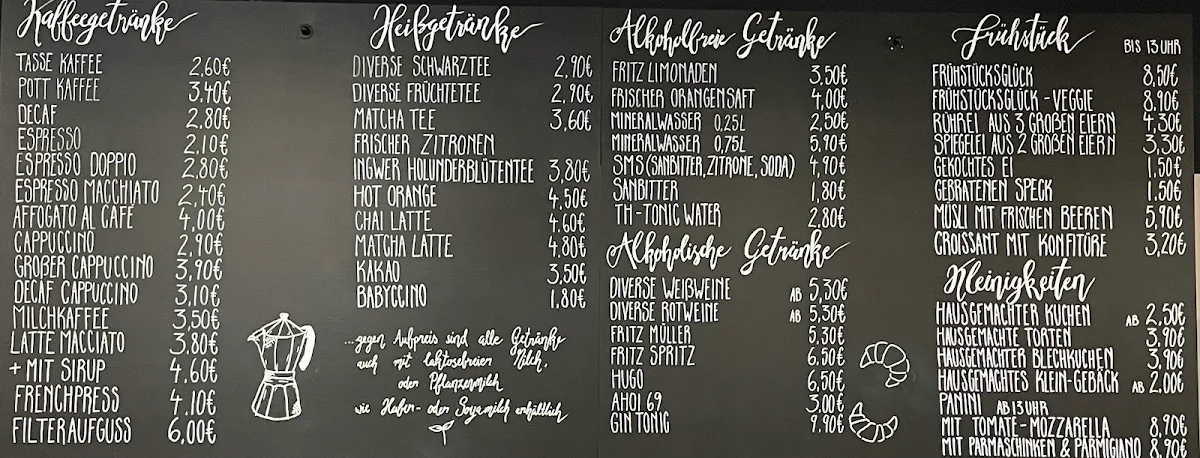 Kaffeegetränke
TASSE KAFFEE 2,60€
POTT KAFFEE 3,40€
DECAF 2,80€
ESPRESSO 2,10€
ESPRESSO DOPPIO 2,80€
ESPRESSO MACCHIATO 2,40€
AFFOGATO AL CAFÉ 4,00€
CAPPUCCINO 2,90€
GROßER CAPPUCCINO 3,90€
DECAF CAPPUCCINO 3,10€
MILCHKAFFEE 3,50€
LATTE MACCIATO 3,80€
+ MIT SIRUP 4,60€
FRENCHPRESS 4,10€
FILTERAUFGUSS 6,00€
Heißgetränke
DIVERSE SCHWARZTEE 2,90€
DIVERSE FRÜCHTETEE 2,90€
MATCHA TEE 3,60€
FRISCHER ZITRONEN
INGWER HOLUNDERBLÜTENTEE 3,80€
HOT ORANGE 4,50€
CHAI LATTE 4.60€
MATCHA LATTE 4.80€
KAKAO 3,50€
BABYCCINO 1,80€
...gegen Aufpreis sind alle Getränke
auch mit laktosefreier Milch,
oder Pflanzenmilch
wie Hafer- oder Soyamilch erhältlich
Alkoholfreie Getränke
FRITZ LIMONADEN 3,50€
FRISCHER ORANGENSAFT 4,00€
MINERALWASSER 0,25L 2,50€
MINERALWASSER 0,75L 5,90€
SMS (SANBITTER, ZITRONE, SODA) 4,90€
SANBITTER 1,80€
TH-TONIC WATER 2,80€
Alkoholische Getränke
DIVERSE WEIßWEINE AB 5,30€
DIVERSE ROTWEINE AB 5,30€
FRITZ MÜLLER 5.30€
FRITZ SPRITZ 6,50€
HUGO 6,50€
AHOI 69 3,00€
GIN TONIC 9.90€
Frühstück BIS 13 UHR
FRÜHSTÜCKSGLÜCK 8,50€
FRÜHSTÜCKSGLÜCK - VEGGIE 8,90€
RÜHREI AUS 3 GROßEN EIERN 4,30€
SPIEGELEI AUS 2 GROßEN EIERN 3,30€
GEKOCHTES EI 1.50€
GEBRATENEN SPECK 1.50€
MÜSLI MIT FRISCHEN BEEREN 5,90€
CROISSANT MIT KONFITÜRE 3,20€
Kleinigkeiten
HAUSGEMACHTER KUCHEN AB 2,50€
HAUSGEMACHTE TORTEN 3,90€
HAUSGEMACHTER BLECHKUCHEN 3,90€
HAUSGEMACHTES KLEIN-GEBÄCK AB 2,00€
PANINI AB 13 UHR
MIT TOMATE-MOZZARELLA 8,90€
MIT PARMASCHINKEN & PARMIGIANO 8,90€